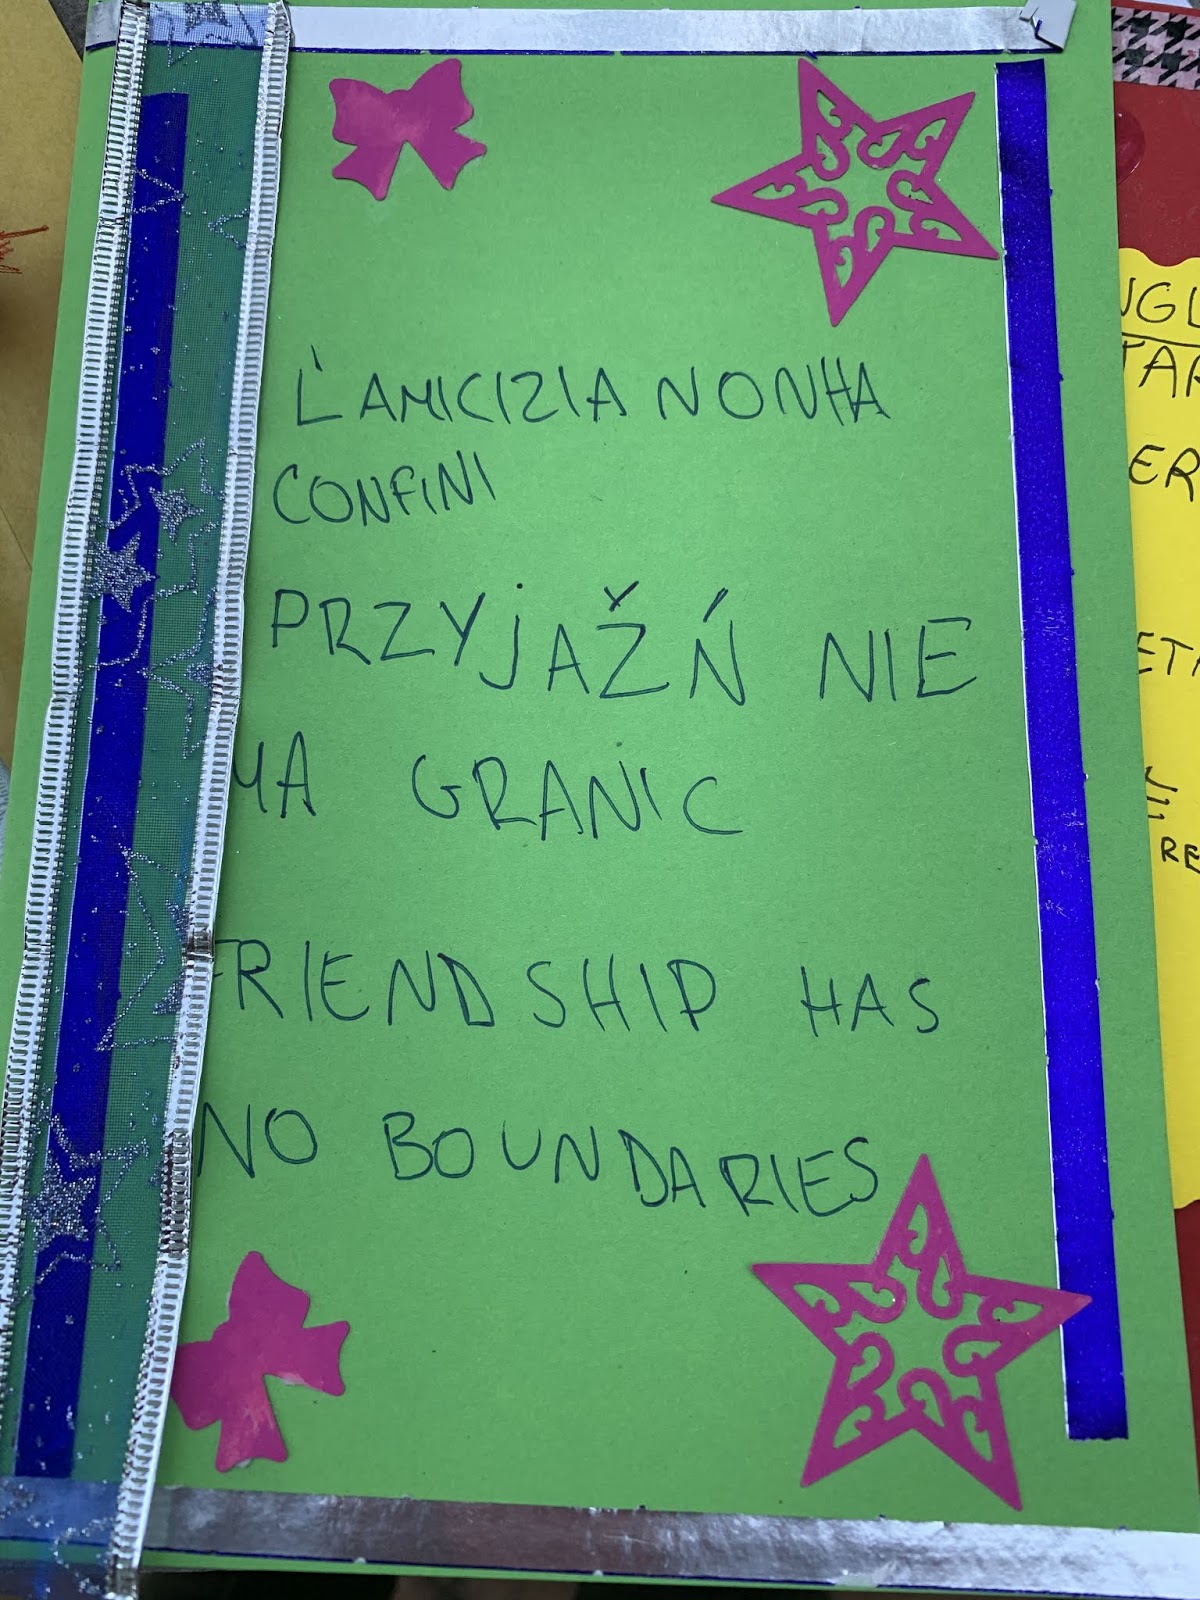 L'AMICIZIA NON HA
CONFINI
PRZYJAŽŃ NIE
MA GRANIC
FRIENDSHIP HAS
NO BOUNDARIES
ER
RE